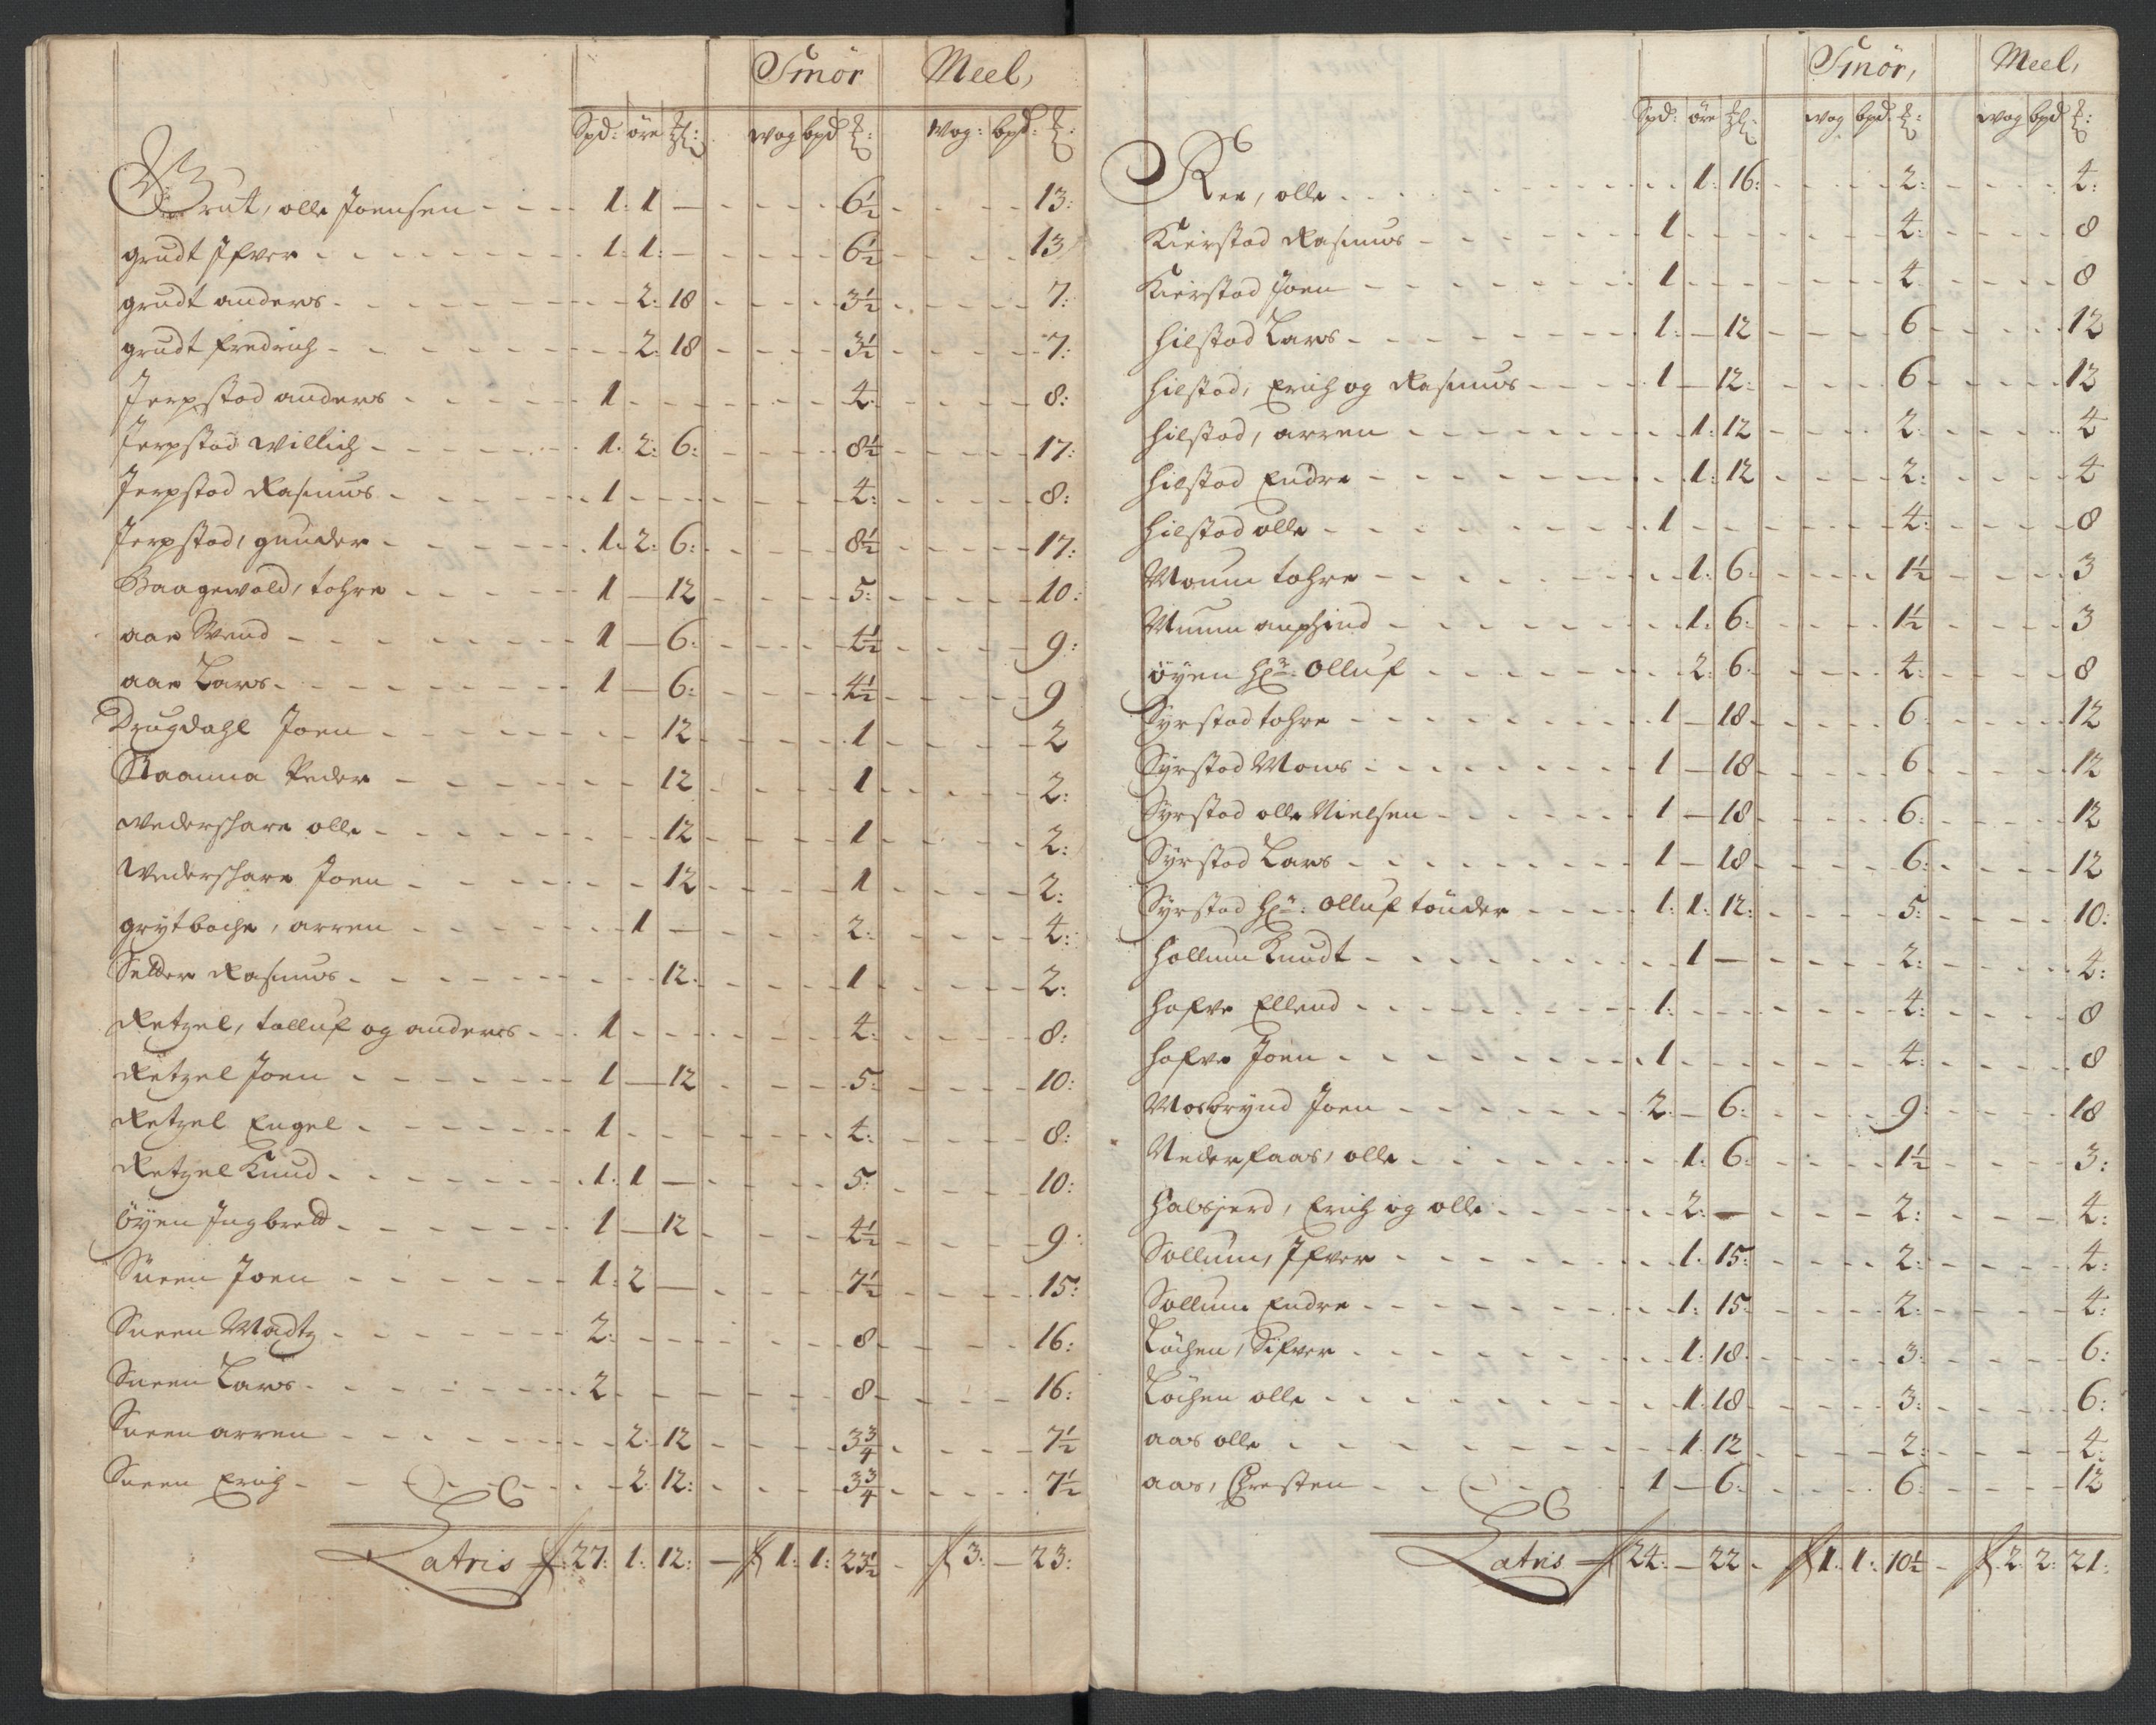 Smör Meel,
Spd: öre : wog bpd : Wog: bpd: :
Grut, olle Joensen 1: 1 — 6½ 13:
grudt Ifver 1: 1: — 6½ 13
grudt anders 2: 18 3½ 7:
grudt Fredrich 2: 18 3½ 7:
Jerpstad anders 1 4 8:
Jerpstad Willich 1: 2: 6: 8½ 17:
Jerpstad Rasmus 1 4: 8:
Jerpstad, gunder 1: 2: 6: 8½ 17:
Baagewold, tohre 1 — 12 5: 10:
aae Svend 1 — 6: 4½ 9:
aae Lars 1 — 6: 4½ 9
Drugdahl Joen 12 1 2
Raanna Peder 12 1 2:
wedershare olle 12 1 2:
Wedershare Joen 12 1 2:
grytbache, arren 1 — 2: 4:
Selder Rasmus 12 1 2:
Retzel, tolluf og anders 1 4: 8:
Retzel Joen 1 — 12 5: 10:
Retzel Engel 1 4: 8:
Retzel Knud 1: 1 — 5: 10:
öyen Ingbreth 1 — 12 4½ 9:
Sneen Joen 1: 2 — 7½ 15:
Sneen Madtz 2: 8 16:
Sneen Lars 2 8 16:
Sneen arren 2: 12 3¾ 7½
Sneen Erich 2: 12: 3¾ 7½
Latris 27: 1: 12: — 1: 1: 23½ 3: — 23:
Smör, Meel,
Spd: öre : wog bpd : wog bpd :
Ree, olle 1: 16: 2: 4:
Kierstad Rasmus 1 4: 8
Kierstad Joen 1 4 8
hilstad Lars 1: — 12 6 12
hilstad, Erich og Rasmus 1 — 12: 6 12
hilstad, arren 1: 12 2 4
hilstad Endre 1: 12 2: 4
hilstad olle 1 4: 8
Moum tohre 1: 6: 1½ 3
Muum anphind 1: 6: 1½ 3
öyen Hr: olluf 2: 6: 4: 8
Syrstad tohre 1 — 18 6: 12
Syrstad Mons 1 — 18 6 12
Syrstad olle Nielsen 1 — 18 6: 12
Syrstad Lars 1 — 18 6: 12
Syrstad Hr: olluf tönder 1: 1: 12: 5: 10:
hollum Knudt 1 — 2: 4:
hafve Ellend 1: 4: 8
hafve Joen 1 4: 8
Mosbrynd Joen 2 — 6: 9: 18
Nederfaas, olle 1: 6: 1½ 3:
halsjerd, Erich og olle 2: — 2: 4:
Sollum, Ifver 1: 15: 2: 4:
Sollum Endre 1: 15: 2: 4:
Löchen, Sifver 1: 18: 3: 6:
Löchen olle 1: 18 3: 6:
aas olle 1: 12 2: 4:
aas, Christen 1 — 6: 6: 12
Latris 24: — 22 — 1: 1: 10½ — 2: 2: 21: